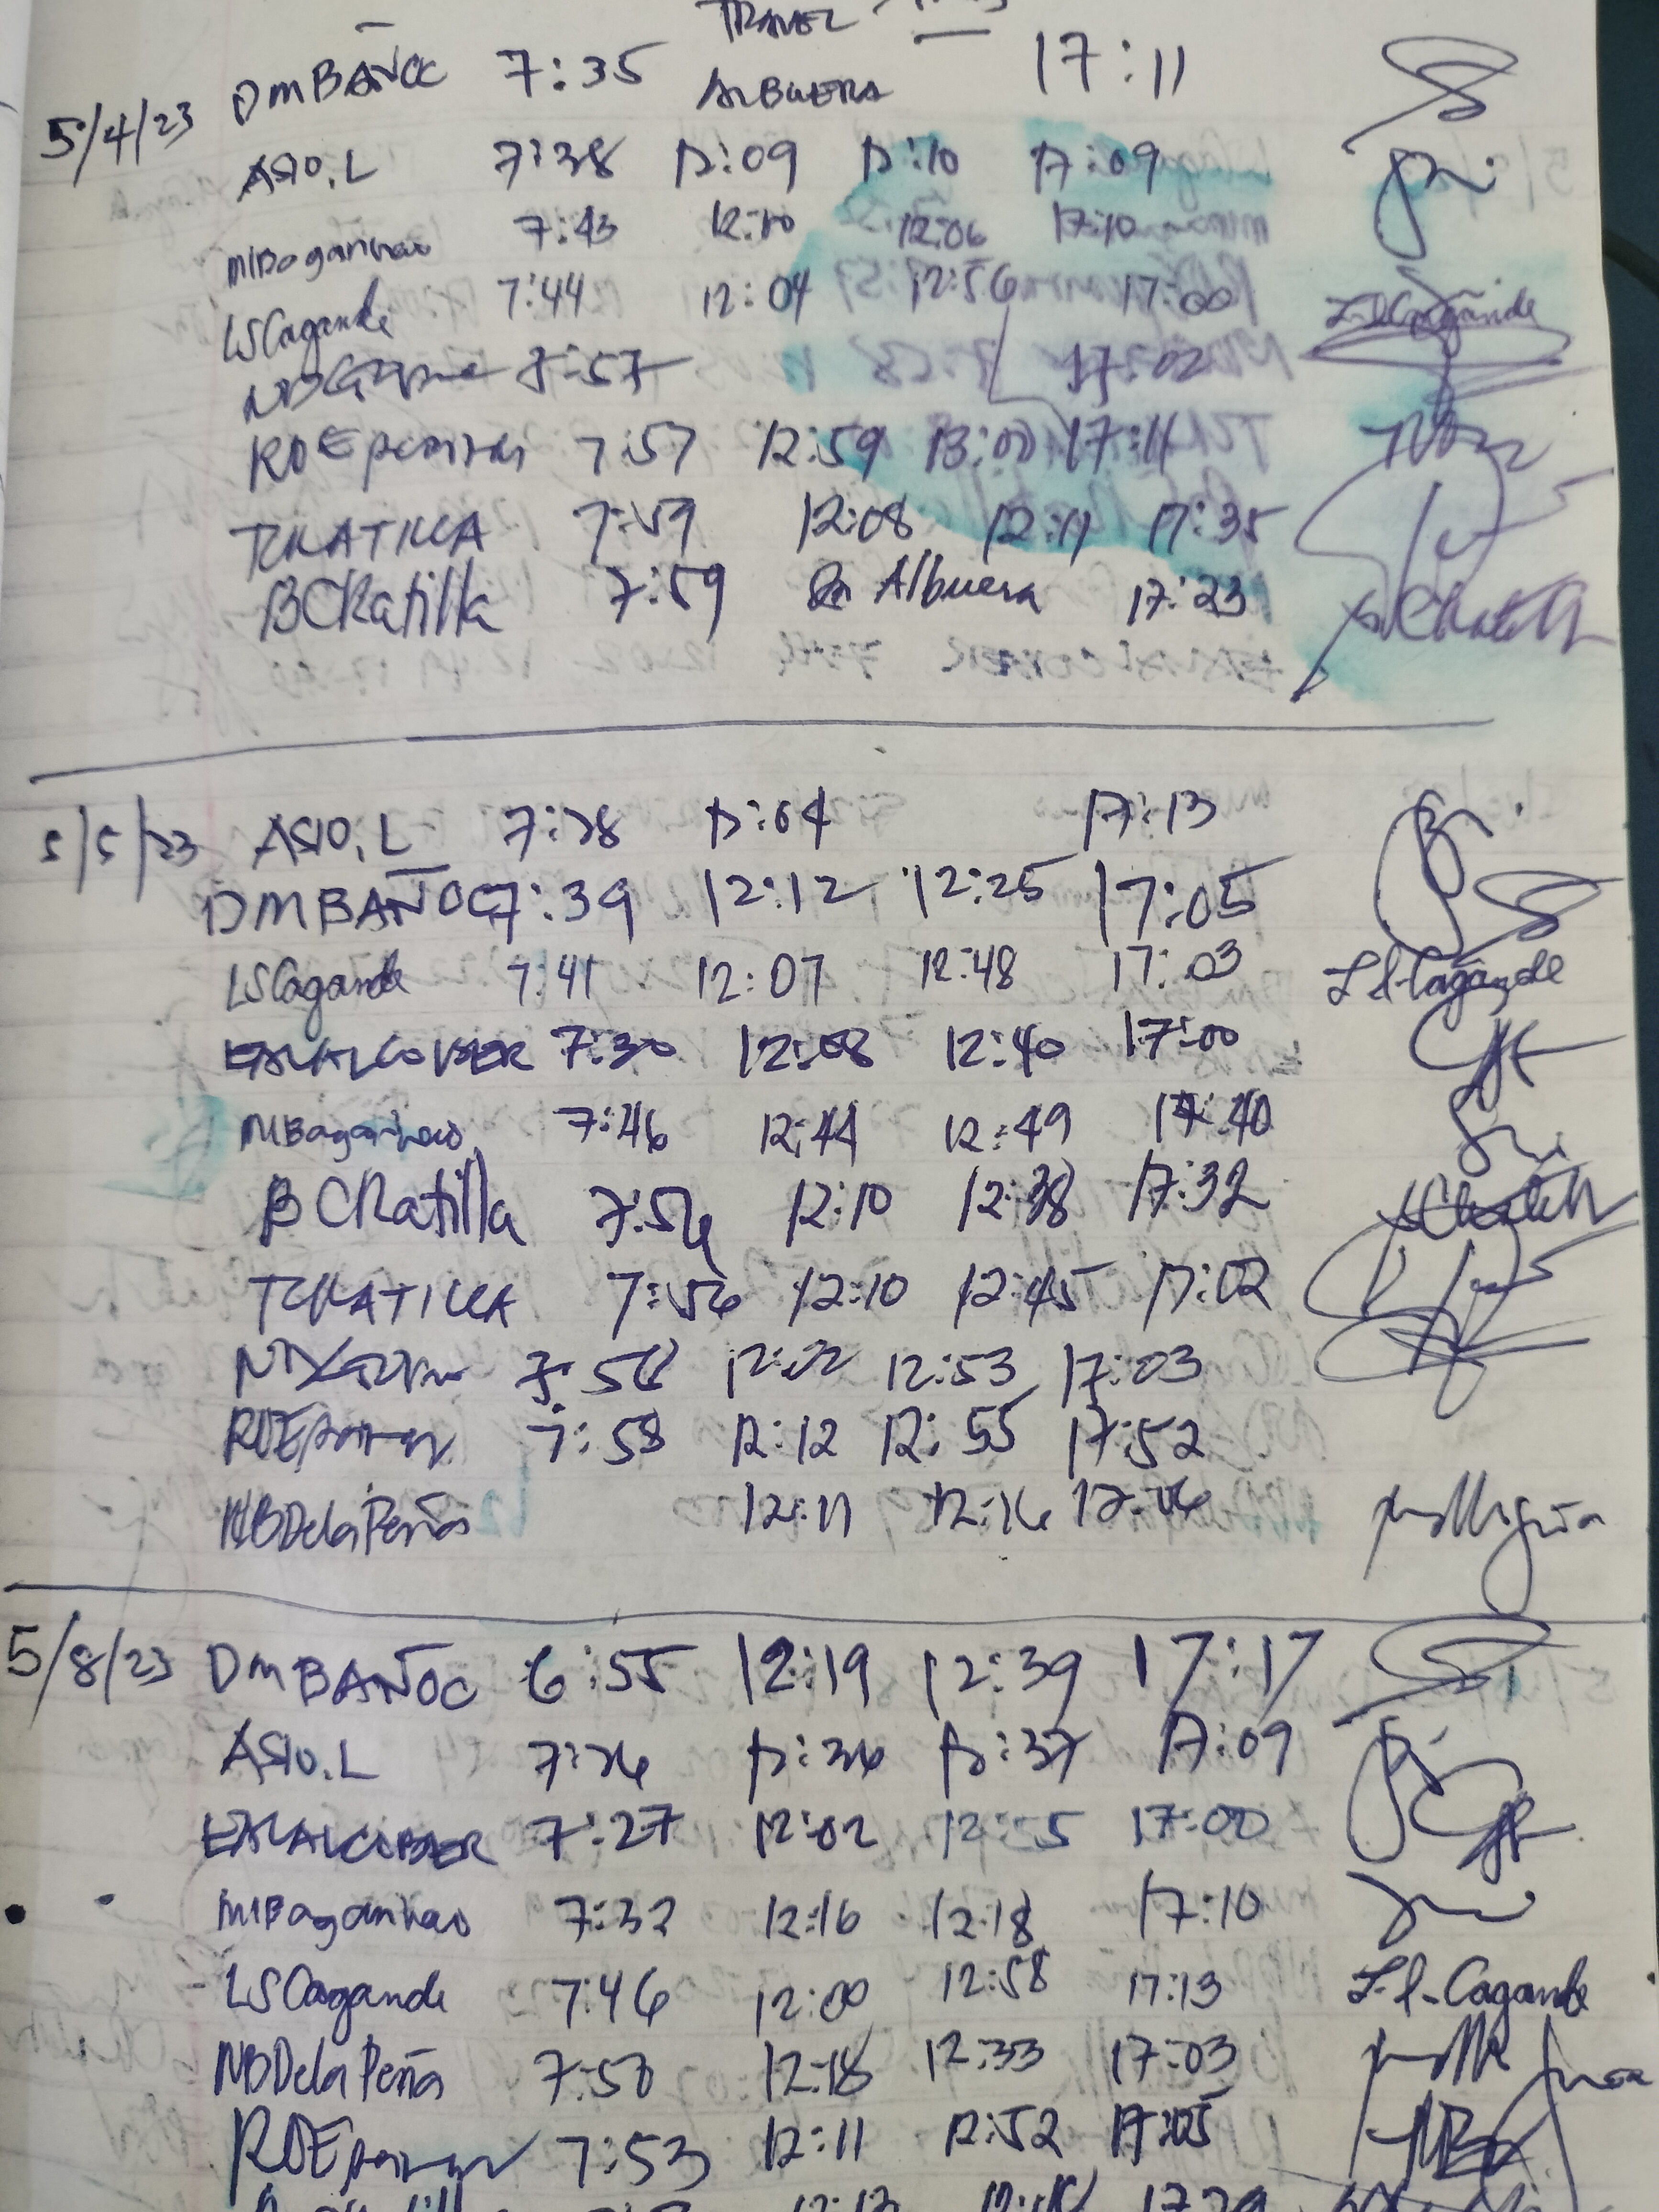 TRAVEL
DMBAÑOC 7:35 ALBUERA 17:11
5/4/23
ASIO.L 7:38 12:09 12:10 17:09
MIBaganhao 7:43 12:10 12:06 17:10
LSCagande 7:44 12:04 12:56 17:00 L.S.Cagande
7:57 17:02
7:57 12:59 13:00 17:11
TCRATILLA 7:59 12:08 12:11 17:35
BCRatilla 7:59 Albuera 17:23
5/5/23 ASIO.L 7:28 12:04 17:13
DMBAÑOC 7:39 12:12 12:25 17:05
LSCagande 7:41 12:07 12:48 17:03 L.S.Cagande
EMALCOBER 7:30 12:08 12:40 17:00
MIBaganhao 7:46 12:44 12:49 17:40
BCRatilla 7:56 12:10 12:38 17:32
TCRATILLA 7:56 12:10 12:45 17:02
7:58 12:53 17:03
7:58 12:12 12:55 17:52
NBDelaPeña 12:11 12:16
5/8/23 DMBAÑOC 6:55 12:19 12:39 17:17
ASIO.L 7:26 12:36 12:37 17:09
EMALCOBER 7:27 12:02 12:55 17:00
MIBaganhao 7:32 12:16 12:18 17:10
LSCagande 7:46 12:00 12:58 17:13 L.S.Cagande
NBDelaPeña 7:50 12:18 12:33 17:03
7:53 12:11 12:52 17:05